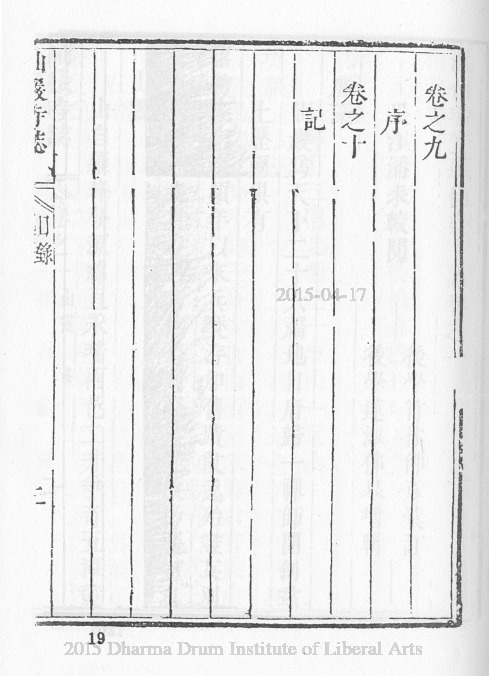 卷之九
序
卷之十
記
山寺誌
目錄
二
2015-04-17
19
2015 Dharma Drum Institute of Liberal Arts